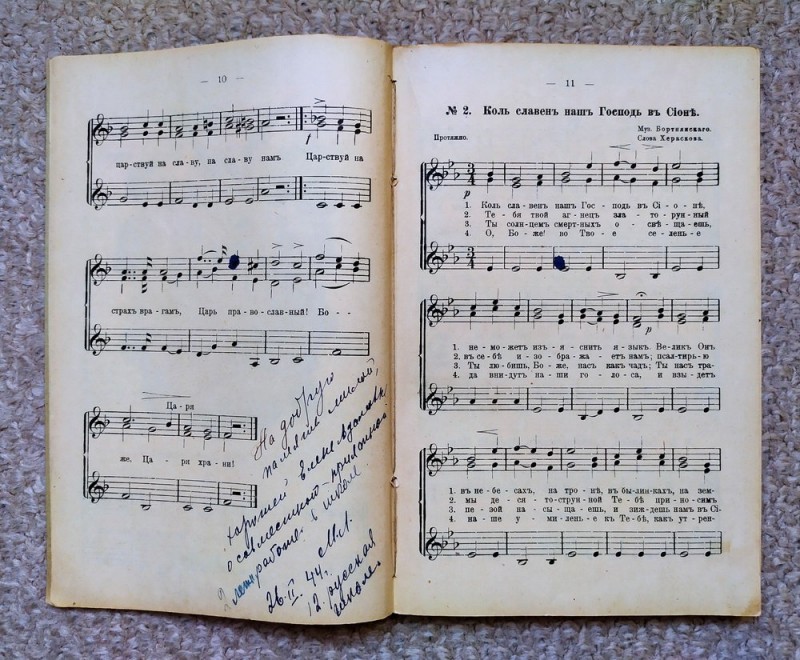 — 10 —
цар-ствуй на сла-ву, на сла-ву намъ Цар-ствуй на
страхъ вра-гамъ, Царь пра-во-слав-ный! Бо - -
Ца-ря
же, Ца-ря хра-ни!
На добрую
память милой,
хорошей Елене
о совместной
2 летн. работе в школе.
26.II.44.
12 русская
школа.
— 11 —
№ 2. Коль славенъ нашъ Господь въ Сіонѣ.
Протяжно.
Муз. Бортнянскаго.
Слова Хераскова.
p
1. Коль сла-венъ нашъ Гос - подь въ Сі - о - нѣ,
2. Те - бя твой агнецъ зла - то-рун-ный
3. Ты солн-цемъ смерт-ныхъ о - свѣ - ща-ешь,
4. О, Бо - же! во Тво - е се-лень-е
p
1. не-мо-жетъ изъ-я - снить я - зыкъ Ве-ликъ Онъ
2. въ се-бѣ и - зо - бра - жа - етъ намъ; псал-тирь-ю
3. Ты лю-бишь, Бо-же, насъ какъ чадъ; Ты насъ тра-
4. да внидутъ на-ши го-ло - са, и взы-детъ
1. въ не-бе - сахъ, на тро - нѣ, въ бы-лин-кахъ, на зем-
2. мы де - ся - то-струн-ной Те-бѣ при-но-симъ
3. пе-зой на - сы - ща-ешь, и зиж-дешь намъ въ Сі-
4. на-ше у - ми-лень-е къ Те-бѣ, какъ ут-рен-